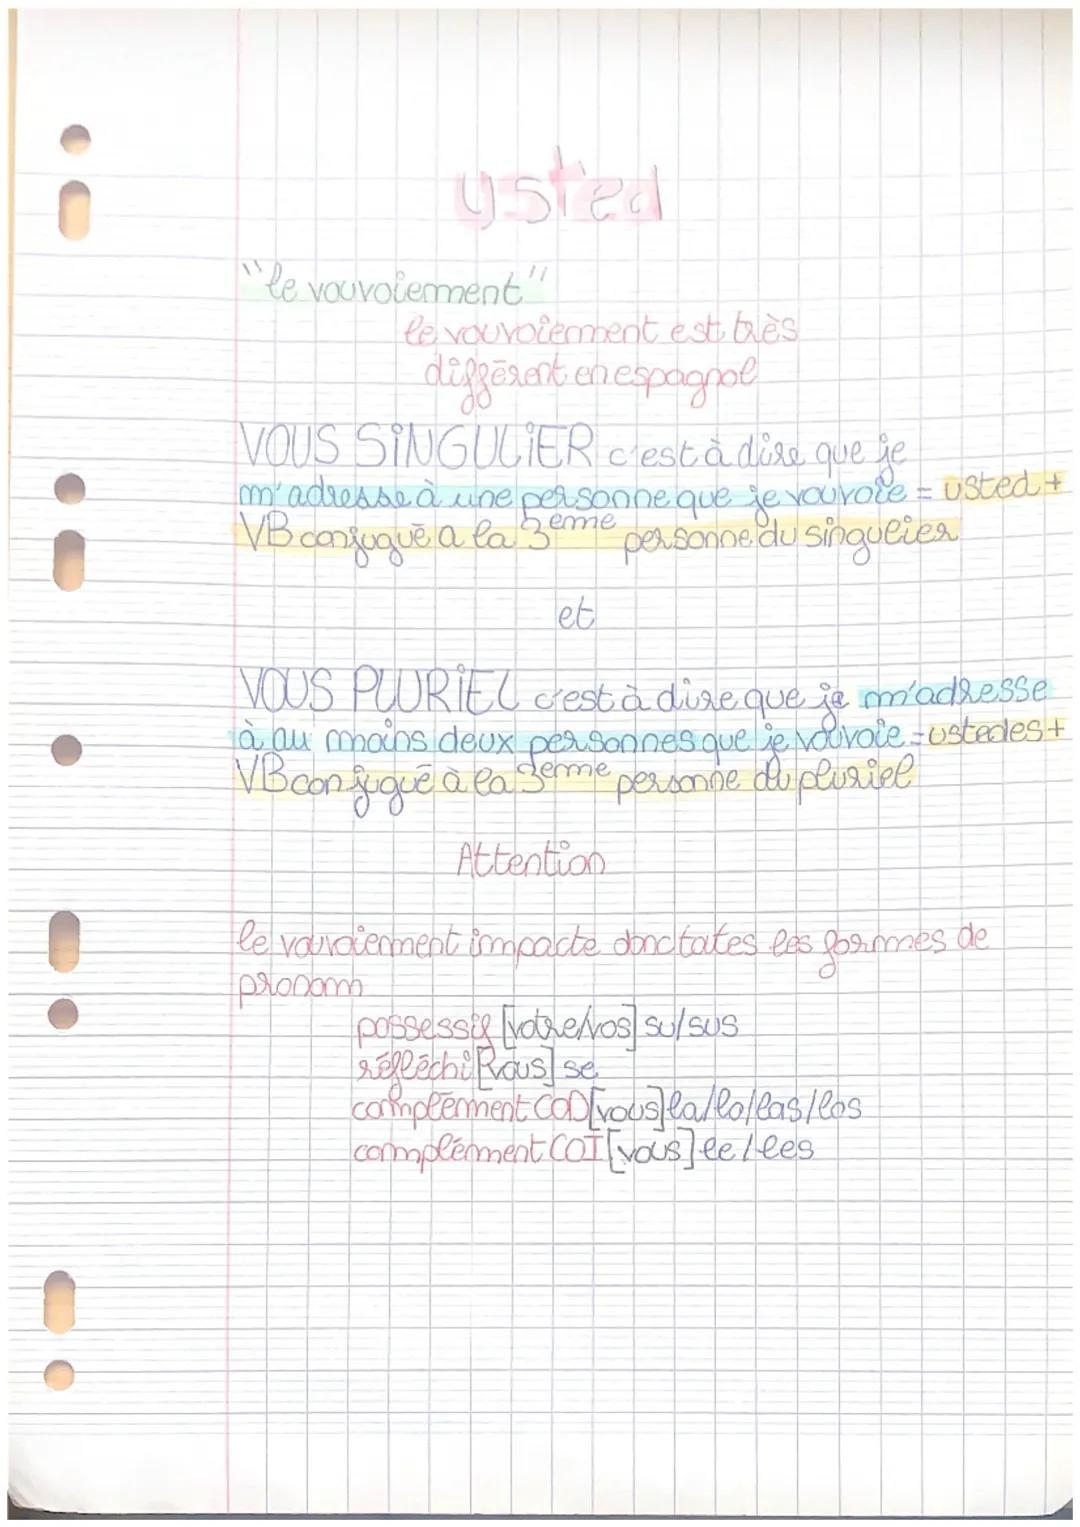 usted
"le vouvoiement"
le vouvoiement est très
différent en espagnol
VOUS SINGULIER c'est à dire que je
m'adresse à une personne que je vouvoie = usted +
VB conjugué a la 3eme personne du singulier
et
VOUS PLURIEL c'est à dire que je m'adresse
à au moins deux personnes que je vouvoie = ustedes +
VB conjugué à la 3eme personne du pluriel
Attention
le vouvoiement impacte donc toutes les formes de
pronom
possessif [votre/vos] su/sus
réfléchi [vous] se
complément COD [vous] la/lo/las/los
complément COI [vous] le/les